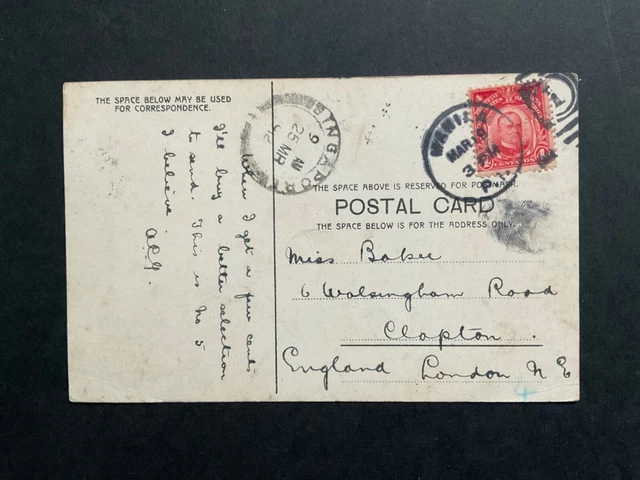 THE SPACE BELOW MAY BE USED
FOR CORRESPONDENCE.
When I get a few cents
I'll buy a better selection
to send. This is No 5
I believe.
SINGAPORE
9 AM
25 MR
MANILA
MAR 19
3 PM
P.I.
4 CENTAVOS 4
THE SPACE ABOVE IS RESERVED FOR POSTMARK.
POSTAL CARD
THE SPACE BELOW IS FOR THE ADDRESS ONLY.
Miss Baker
6 Walsingham Road
Clapton.
England London N E
4